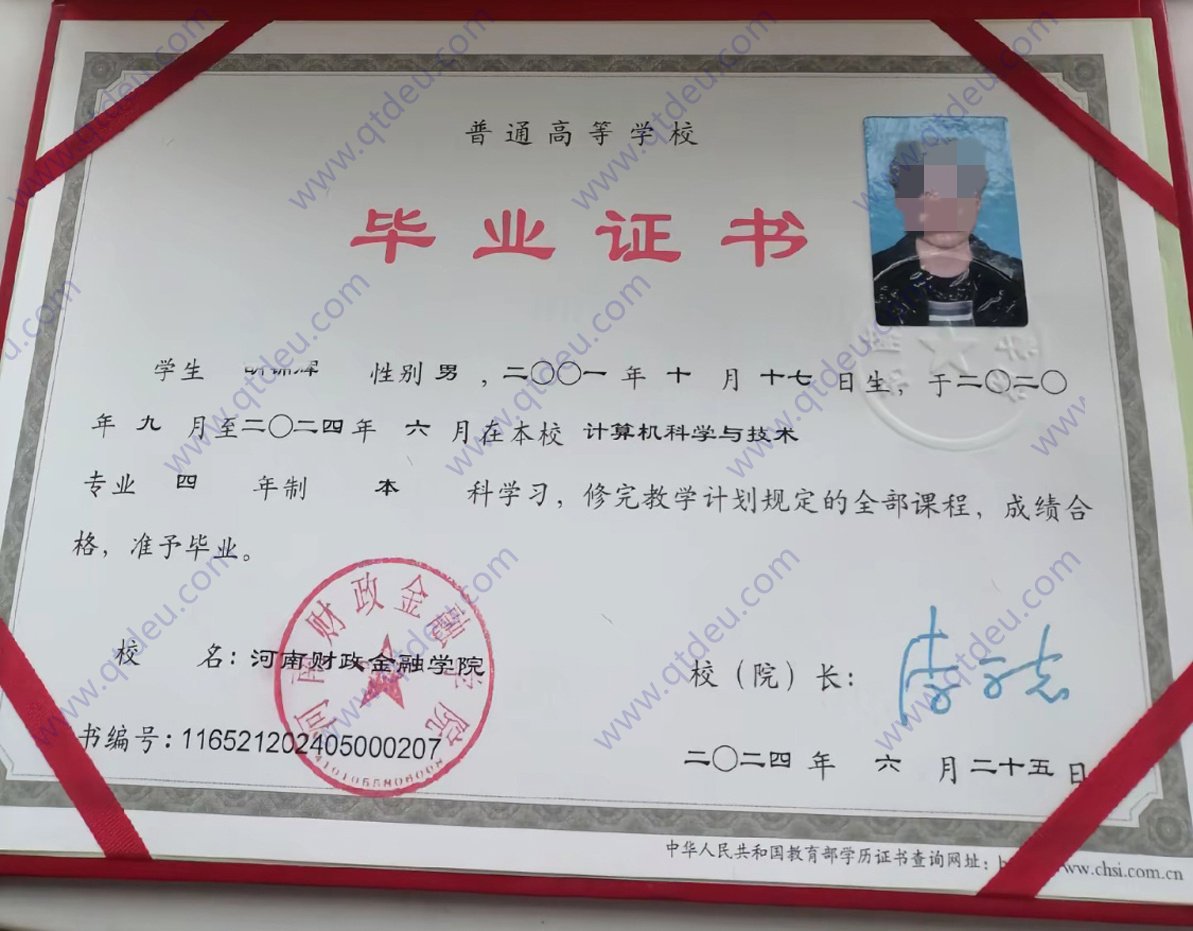 普通高等学校
毕业证书
学生 性别 男 ，二〇〇一 年 十 月 十七 日生，于二〇二〇
年 九 月至二〇二四年 六 月在本校 计算机科学与技术
专业 四 年制 本 科学习，修完教学计划规定的全部课程，成绩合
格，准予毕业。
校 名：河南财政金融学院
校（院）长：
书编号：116521202405000207
二〇二四 年 六 月 二十五 日
河南财政金融学院
中华人民共和国教育部学历证书查询网址： www.chsi.com.cn
www.qtdeu.com